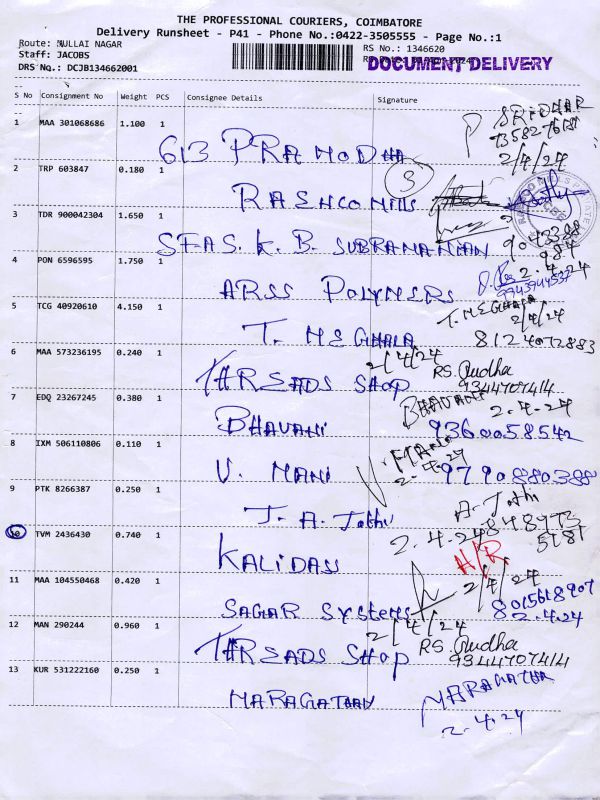 THE PROFESSIONAL COURIERS, COIMBATORE
Delivery Runsheet - P41 - Phone No.:0422-3505555 - Page No.:1
Route: MULLAI NAGAR
Staff: JACOBS
DRS No.: DCJB134662001
RS No.: 1346620
DOCUMENT DELIVERY
S No Consignment No Weight PCS Consignee Details Signature
1 MAA 301068686 1.100 1 613 PRAMODHA SRIDHAR
2/4/24
2 TRP 603847 0.180 1 RASHCO Mills 3
3 TDR 900042304 1.650 1 SFAS. K. B. SUBRAMANIAN 9043398
984
2.4.24
4 PON 6596595 1.750 1 ARSS POLYMERS 9943944537
5 TCG 40920610 4.150 1 T. MEGHALA T. MEGHALA
2/4/24
8124072883
6 MAA 573236195 0.240 1 THREADS SHOP 2/4/24 RS. Rudha
9344707414
7 EDQ 23267245 0.380 1 BHAVANI BHAVANI 2.4.24
9360058542
8 IXM 506110806 0.110 1 V. MANI V. MANI
2.4.24 9790880388
9 PTK 8266387 0.250 1 J. A. Jothi A. Jothi
2.4.24 848973
5181
10 TVM 2436430 0.740 1 KALIDASS H/R
11 MAA 104550468 0.420 1 SAGAR Systems 2/4/24
8015618907
2.4.24
12 MAN 290244 0.960 1 THREADS SHOP 2/4/24 RS. Rudha
9344707414
13 KUR 531222160 0.250 1 MARAGATHAM MARAGATHA
2.4.24